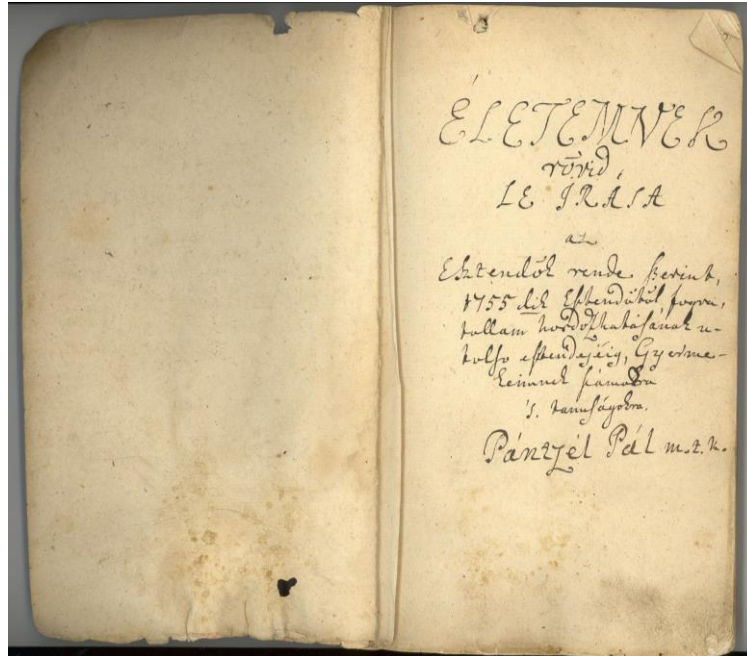 ÉLETEMNEK
rövid,
LE IRÁSA
az
Esztendők rende szerint,
1755dik Esztendőtől fogva,
tollam hordozhatásának u-
tolsó esztendejéig, Gyerme-
keimnek számokra
's. tanuságokra.
Pántzél Pál m.t.k.